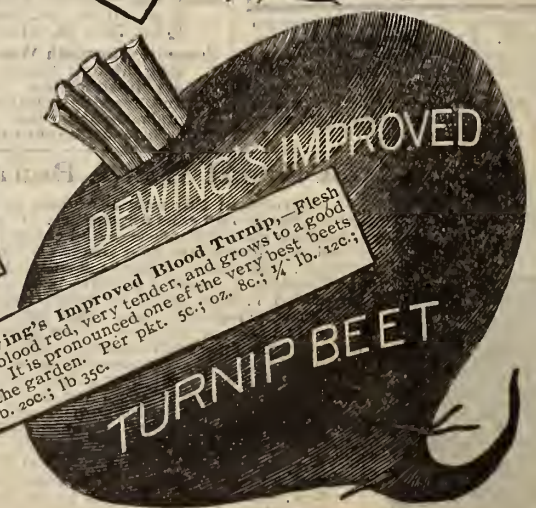 DEWING'S IMPROVED
wing's Improved Blood Turnip,—Flesh
blood red, very tender, and grows to a good
It is pronounced one of the very best beets
he garden. Per pkt. 5c.; oz. 8c.; ¼ lb. 12c.;
b. 20c.; lb 35c.
TURNIP BEET